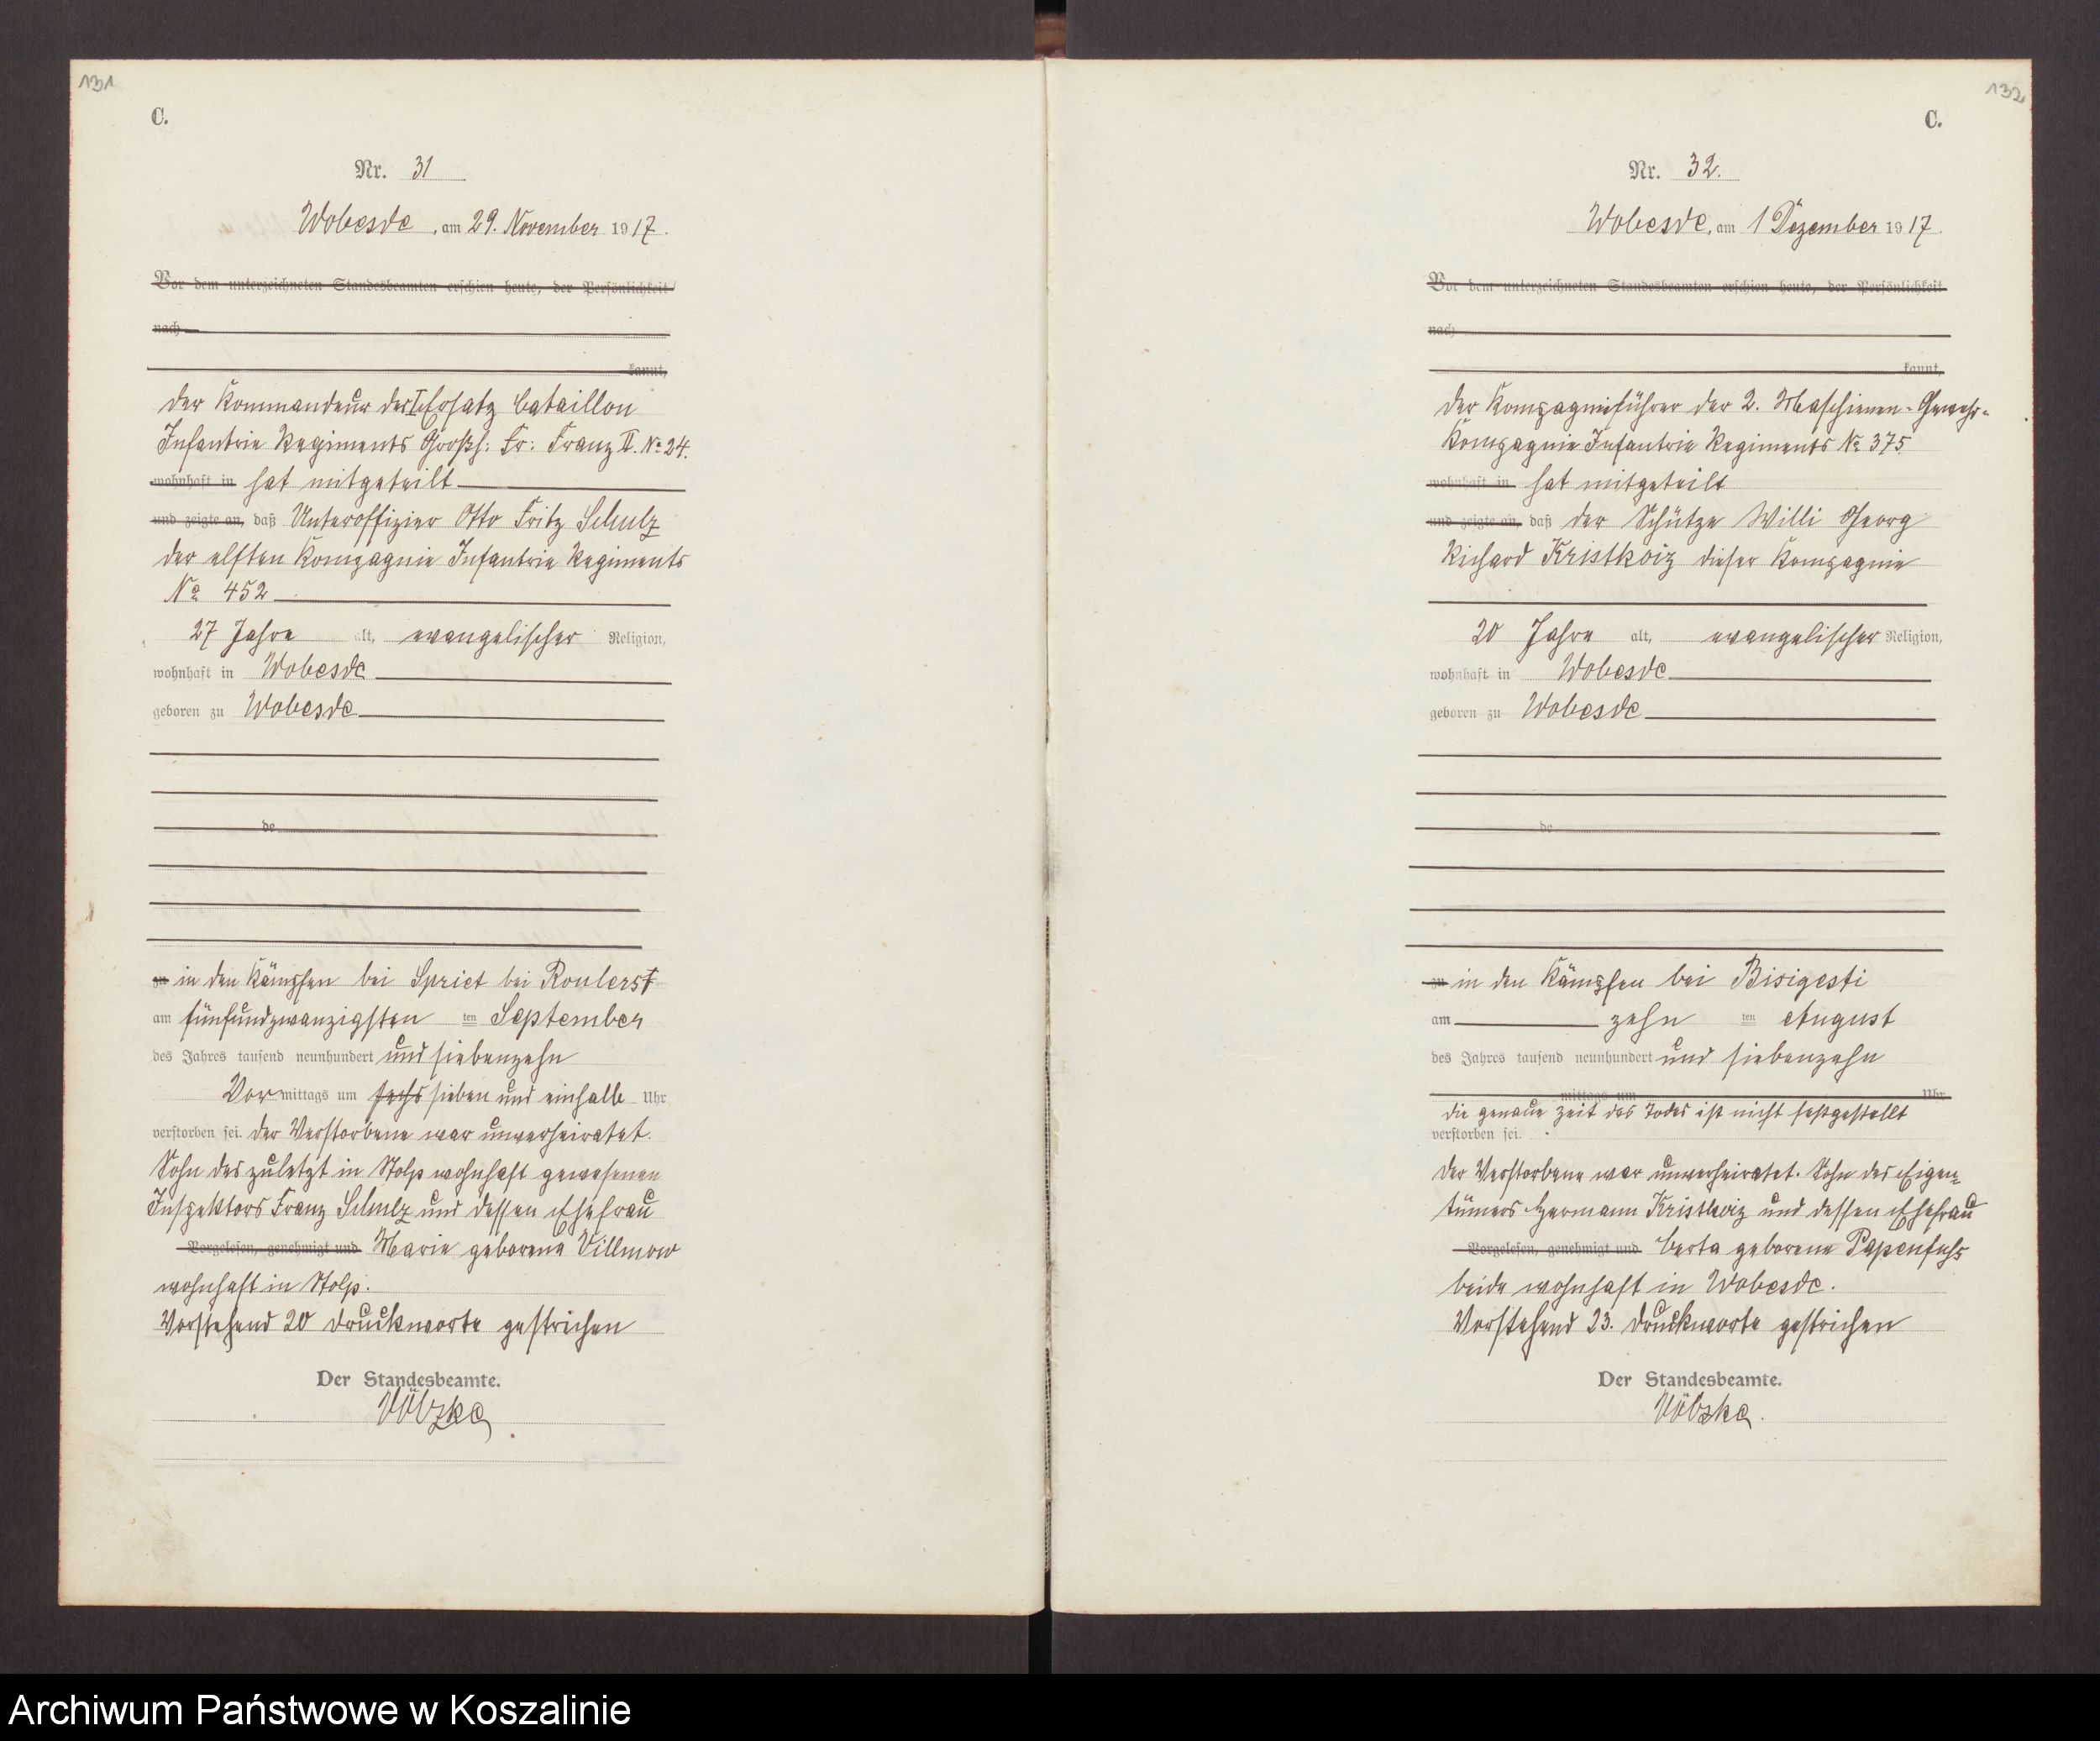 131
C.
Nr. 31
Wobesde, am 29. November 1917.
Vor dem unterzeichneten Standesbeamten erschien heute, der Persönlichkeit
nach
kannt,
der Kommandeur des I. Ersatz Bataillon
Infantrie Regiments Großh: Fr: Franz II. No 24.
wohnhaft in hat mitgeteilt
und zeigte an, daß Unteroffizier Otto Fritz Schulz
der elften Kompagnie Infantrie Regiments
No 452
27 Jahre alt, evangelischer Religion,
wohnhaft in Wobesde
geboren zu Wobesde
de
zu in den Kämpfen bei Spriet bei Roulers
am fünfundzwanzigsten ten September
des Jahres tausend neunhundert und siebenzehn
Vormittags um sechs sieben und einhalb Uhr
verstorben sei. Der Verstorbene war unverheiratet.
Sohn des zuletzt in Stolp wohnhaft gewesenen
Inspektors Franz Schulz und dessen Ehefrau
Vorgelesen, genehmigt und Marie geborene Villmow
wohnhaft in Stolp.
Vorstehend 20 Druckworte gestrichen
Der Standesbeamte.
132
C.
Nr. 32.
Wobesde, am 1 Dezember 1917.
Vor dem unterzeichneten Standesbeamten erschien heute, der Persönlichkeit
nach
kannt,
Der Kompagnieführer der 2. Maschienen-Gewehr-
Kompagnie Infantrie Regiments No 375.
wohnhaft in hat mitgeteilt
und zeigte an, daß der Schütze Willi Georg
Richard Kristkoiz dieser Kompagnie
20 Jahre alt, evangelischer Religion,
wohnhaft in Wobesde
geboren zu Wobesde
de
zu in den Kämpfen bei Bisigesti
am zehn ten August
des Jahres tausend neunhundert und siebenzehn
mittags um Uhr
die genaue Zeit des Todes ist nicht festgestellt
verstorben sei.
Der Verstorbene war unverheiratet. Sohn des Eigen-
tümers Hermann Kristkoiz und dessen Ehefrau
Vorgelesen, genehmigt und Berta geborene Papenfuhs
beide wohnhaft in Wobesde.
Vorstehend 23. Druckworte gestrichen
Der Standesbeamte.
Archiwum Państwowe w Koszalinie